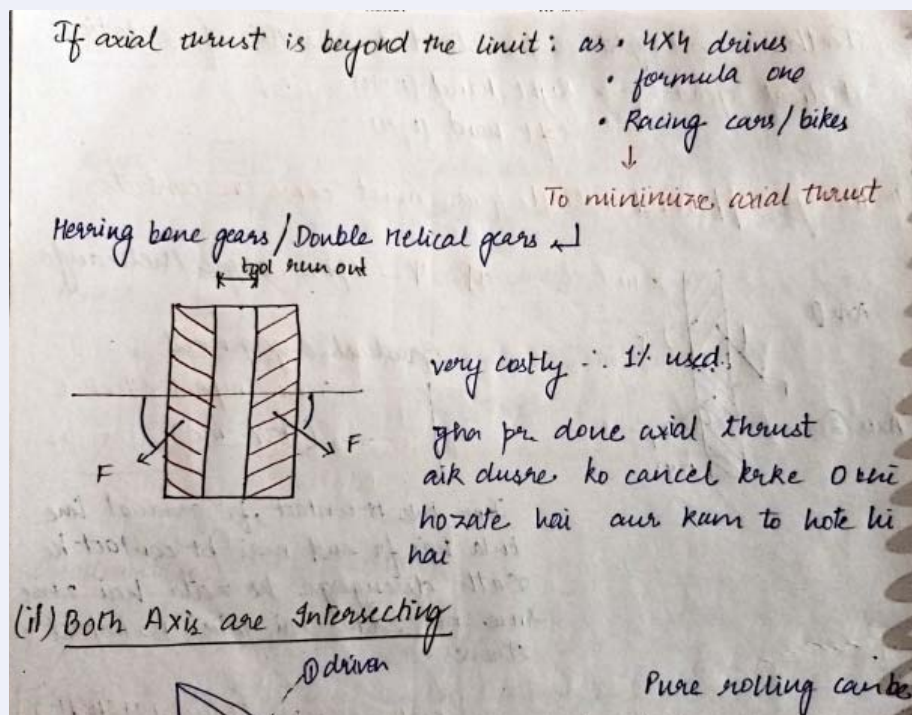 If axial thrust is beyond the limit: as • 4X4 drives
• formula one
• Racing cars/bikes
↓
To minimize axial thrust
Herring bone gears/Double Helical gears ↵
tool run out
very costly ∴ 1% used.
F
F
yha pr done axial thrust
aik dusre ko cancel krke 0 bhi
hozate hai aur kam to hote hi
hai
(ii) Both Axis are Intersecting
① driven
Pure rolling can be